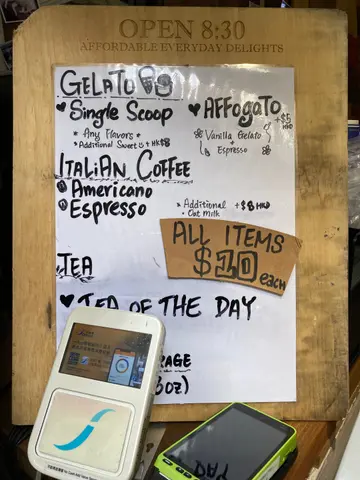 OPEN 8:30
AFFORDABLE EVERYDAY DELIGHTS
GELATO
Single Scoop
* Any Flavors *
AFFOGATO
+$5
HKD
Vanilla Gelato
+
Espresso
ITALIAN COFFEE
Americano
Espresso
* Additional +$8 HKD
• Oat Milk
ALL ITEMS
$10 each
TEA
TEA OF THE DAY